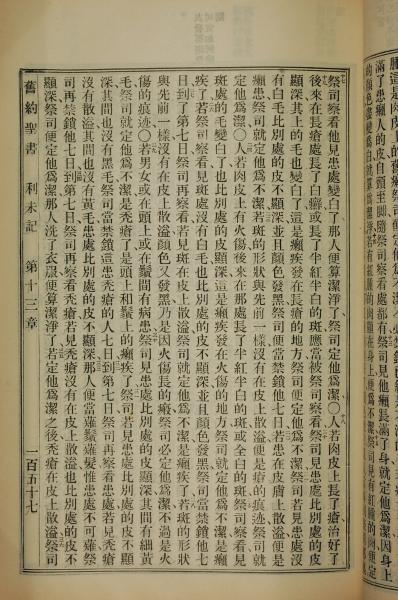 祭司察看他見患處變白了那人便算潔淨了祭司定他爲潔〇人若肉皮上長了瘡治好了
後來在長瘡處長了白癤或長了半紅半白的斑應當被祭司察看祭司見患處比別處的皮
顯深其上的毛也變白了這是癩疾發在長瘡的地方祭司便定他爲不潔祭司若見患處沒
有白毛比別處的皮不顯深並且顏色發黑祭司便當禁鎖他七日若患在皮膚上散溢便是
癩患祭司就定他爲不潔若斑的形狀與先前一樣沒有在皮上散溢便是瘡的痕迹祭司就
定他爲潔〇人若肉皮上有火傷後來在那處長了半紅半白的斑或全白的斑祭司察看見
斑處的毛變白了也比別處的皮顯深這是癩疾發在火傷的地方祭司就定他爲不潔是癩
疾了若祭司察看見斑處沒有白毛也比別處的皮不顯深並且顏色發黑祭司當禁鎖他七
日到了第七日祭司再察看若在皮上散溢祭司就定他爲不潔是癩疾了若斑的形狀
與先前一樣沒有在皮上散溢顏色又發黑乃是因火傷長的祭司必定他爲潔不過是火
傷的痕迹〇若男女或在頭上或在鬚間有病患祭司見患處比別處的皮顯深其間有細黃
毛祭司就定他爲不潔是禿瘡了是頭上和鬚上的癩疾了祭司若見患處比別處的皮不顯
深其間也沒有黑毛祭司當禁鎖這患禿瘡的人七日到第七日祭司再察看患處若見禿瘡
沒有散溢其間也沒有黃毛患處比別處的皮不顯深那人便當薙鬚薙髮惟患處不可薙祭
司再禁鎖他七日到第七日祭司再察看禿瘡若見禿瘡沒有在皮上散溢也比別處的皮不
顯深祭司便定他爲潔那人洗了衣服便算潔淨了若定他爲潔之後禿瘡在皮上散溢祭司
舊約聖書 利未記 第十三章 一百五十七